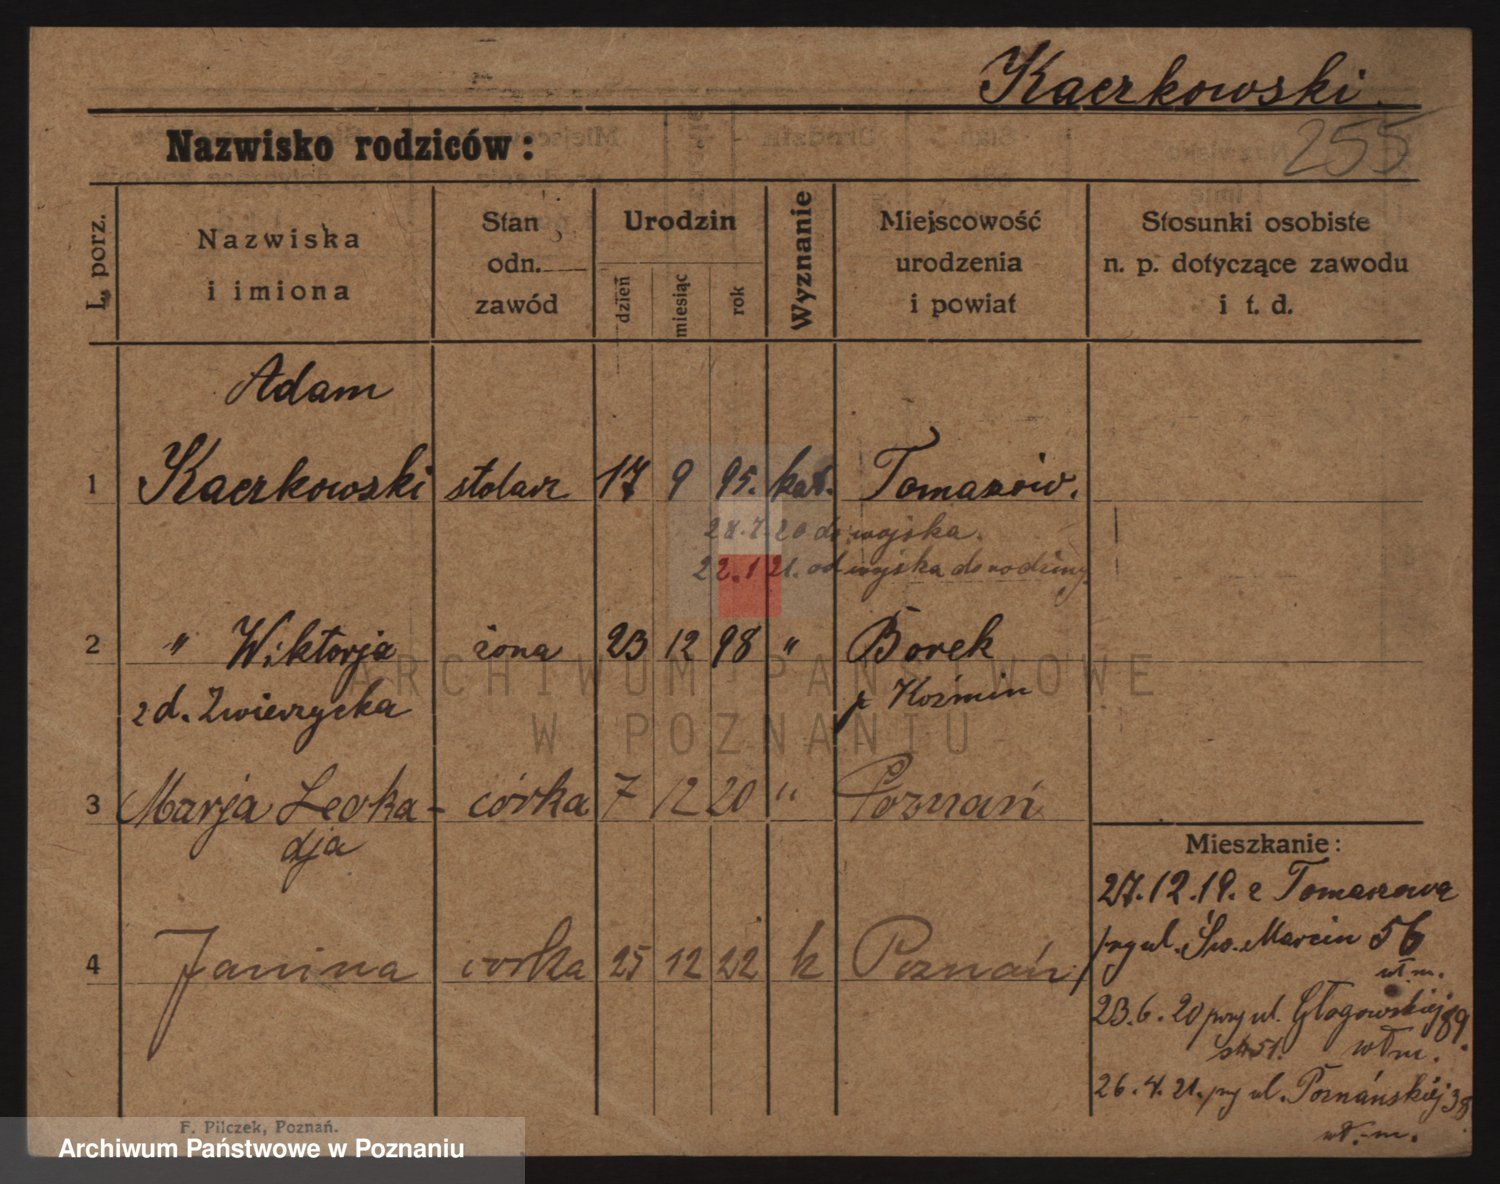 Kaczkowski.
255
Nazwisko rodziców:
L. porz.
Nazwiska
i imiona
Stan
odn.
zawód
Urodzin
dzień
miesiąc
rok
Wyznanie
Miejscowość
urodzenia
i powiat
Stosunki osobiste
n. p. dotyczące zawodu
i t. d.
Adam
1 Kaczkowski stolarz 17 9 95. kat. Tomaszów.
28.7.20 do wojska.
22.1.21. od wojska do rodziny.
2 " Wiktorja żona 23 12 98 " Borek
zd. Zwierzycka p Koźmin
3 Marja Leoka- córka 7 12 20 " Poznań
dja
4 Janina córka 25 12 22 k Poznań
Mieszkanie:
27.12.19. z Tomaszowa
przy ul. Św. Marcin 56
wł. m.
23.6.20 przy ul. Głogowskiej 89.
wł m.
26.4.21. przy ul. Poznańskiej 38.
wł. m.
F. Pilczek, Poznań.
ARCHIWUM PAŃSTWOWE
W POZNANIU
Archiwum Państwowe w Poznaniu